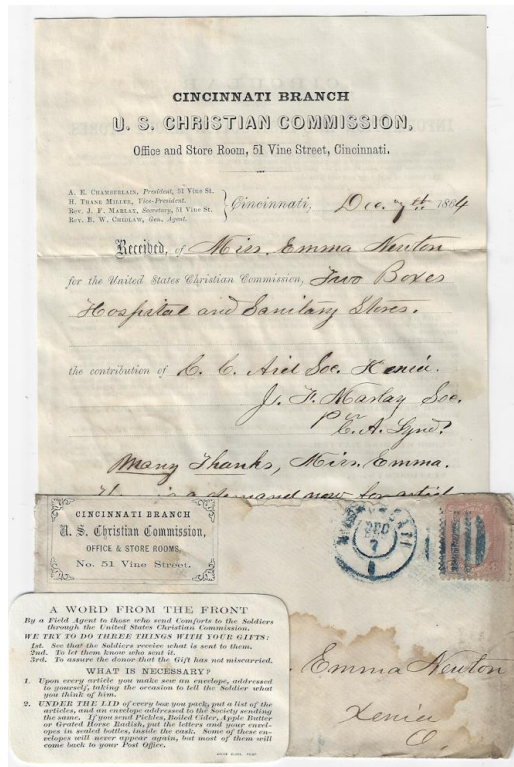 CINCINNATI BRANCH
U. S. CHRISTIAN COMMISSION,
Office and Store Room, 51 Vine Street, Cincinnati.
A. E. CHAMBERLAIN, President, 51 Vine St.
H. THANE MILLER, Vice-President.
Rev. J. F. MARLAY, Secretary, 51 Vine St.
Rev. B. W. CHIDLAW, Gen. Agent.
Cincinnati, Dec. 7th 1864
Received, of Miss. Emma Newton
for the United States Christian Commission, Two Boxes
Hospital and Sanitary Stores.
the contribution of C. C. Aid Soc. Xenia.
J. F. Marlay Sec.
Many Thanks, Miss. Emma.
is a demand now for
CINCINNATI BRANCH
U. S. Christian Commission,
OFFICE & STORE ROOMS,
No. 51 Vine Street.
DEC
7
3
Emma Newton
Xenia
O.
A WORD FROM THE FRONT
By a Field Agent to those who send Comforts to the Soldiers
through the United States Christian Commission.
WE TRY TO DO THREE THINGS WITH YOUR GIFTS:
1st. See that the Soldiers receive what is sent to them.
2nd. To let them know who sent it.
3rd. To assure the donor that the Gift has not miscarried.
WHAT IS NECESSARY?
1. Upon every article you make sew an envelope, addressed
to yourself, taking the occasion to tell the Soldier what
you think of him.
2. UNDER THE LID of every box you pack, put a list of the
articles, and an envelope addressed to the Society sending
the same. If you send Pickles, Boiled Cider, Apple Butter
or Grated Horse Radish, put the letters and your envel-
opes in sealed bottles, inside the cask. Some of these en-
velopes will never appear again, but most of them will
come back to your Post Office.